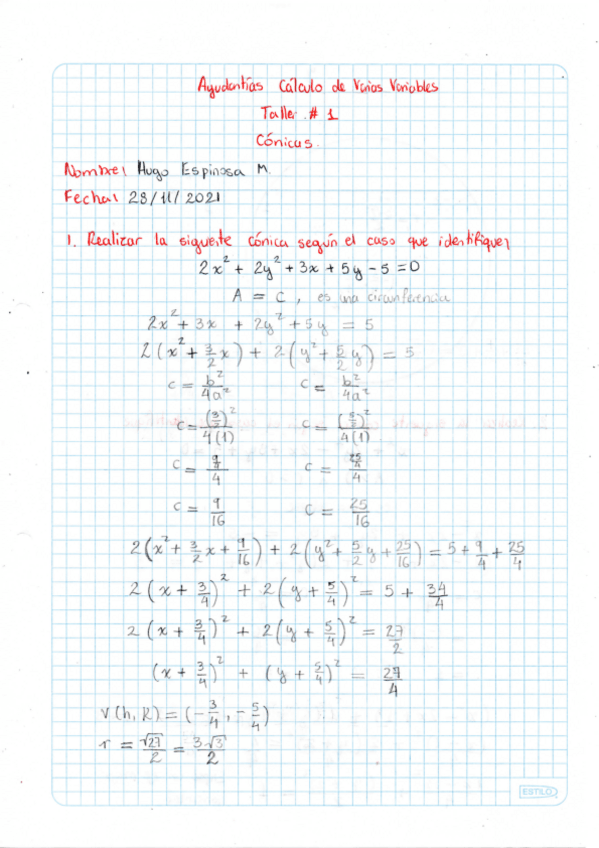 Ayudantías Cálculo de Varias Variables
Taller. # 1
Cónicas.
Nombre: Hugo Espinosa M.
Fecha: 28/11/2021
1. Realizar la siguiente cónica según el caso que identifique:
2x² + 2y² + 3x + 5y - 5 = 0
A = C , es una circunferencia
2x² + 3x + 2y² + 5y = 5
2(x² + 3/2 x) + 2(y² + 5/2 y) = 5
c = b²/4a² c = b²/4a²
c = (3/2)²/4(1) c = (5/2)²/4(1)
c = 9/4/4 c = 25/4/4
c = 9/16 c = 25/16
2(x² + 3/2 x + 9/16) + 2(y² + 5/2 y + 25/16) = 5 + 9/4 + 25/4
2(x + 3/4)² + 2(y + 5/4)² = 5 + 34/4
2(x + 3/4)² + 2(y + 5/4)² = 27/2
(x + 3/4)² + (y + 5/4)² = 27/4
V(h, k) = (-3/4, -5/4)
r = √27/2 = 3√3/2
ESTILO